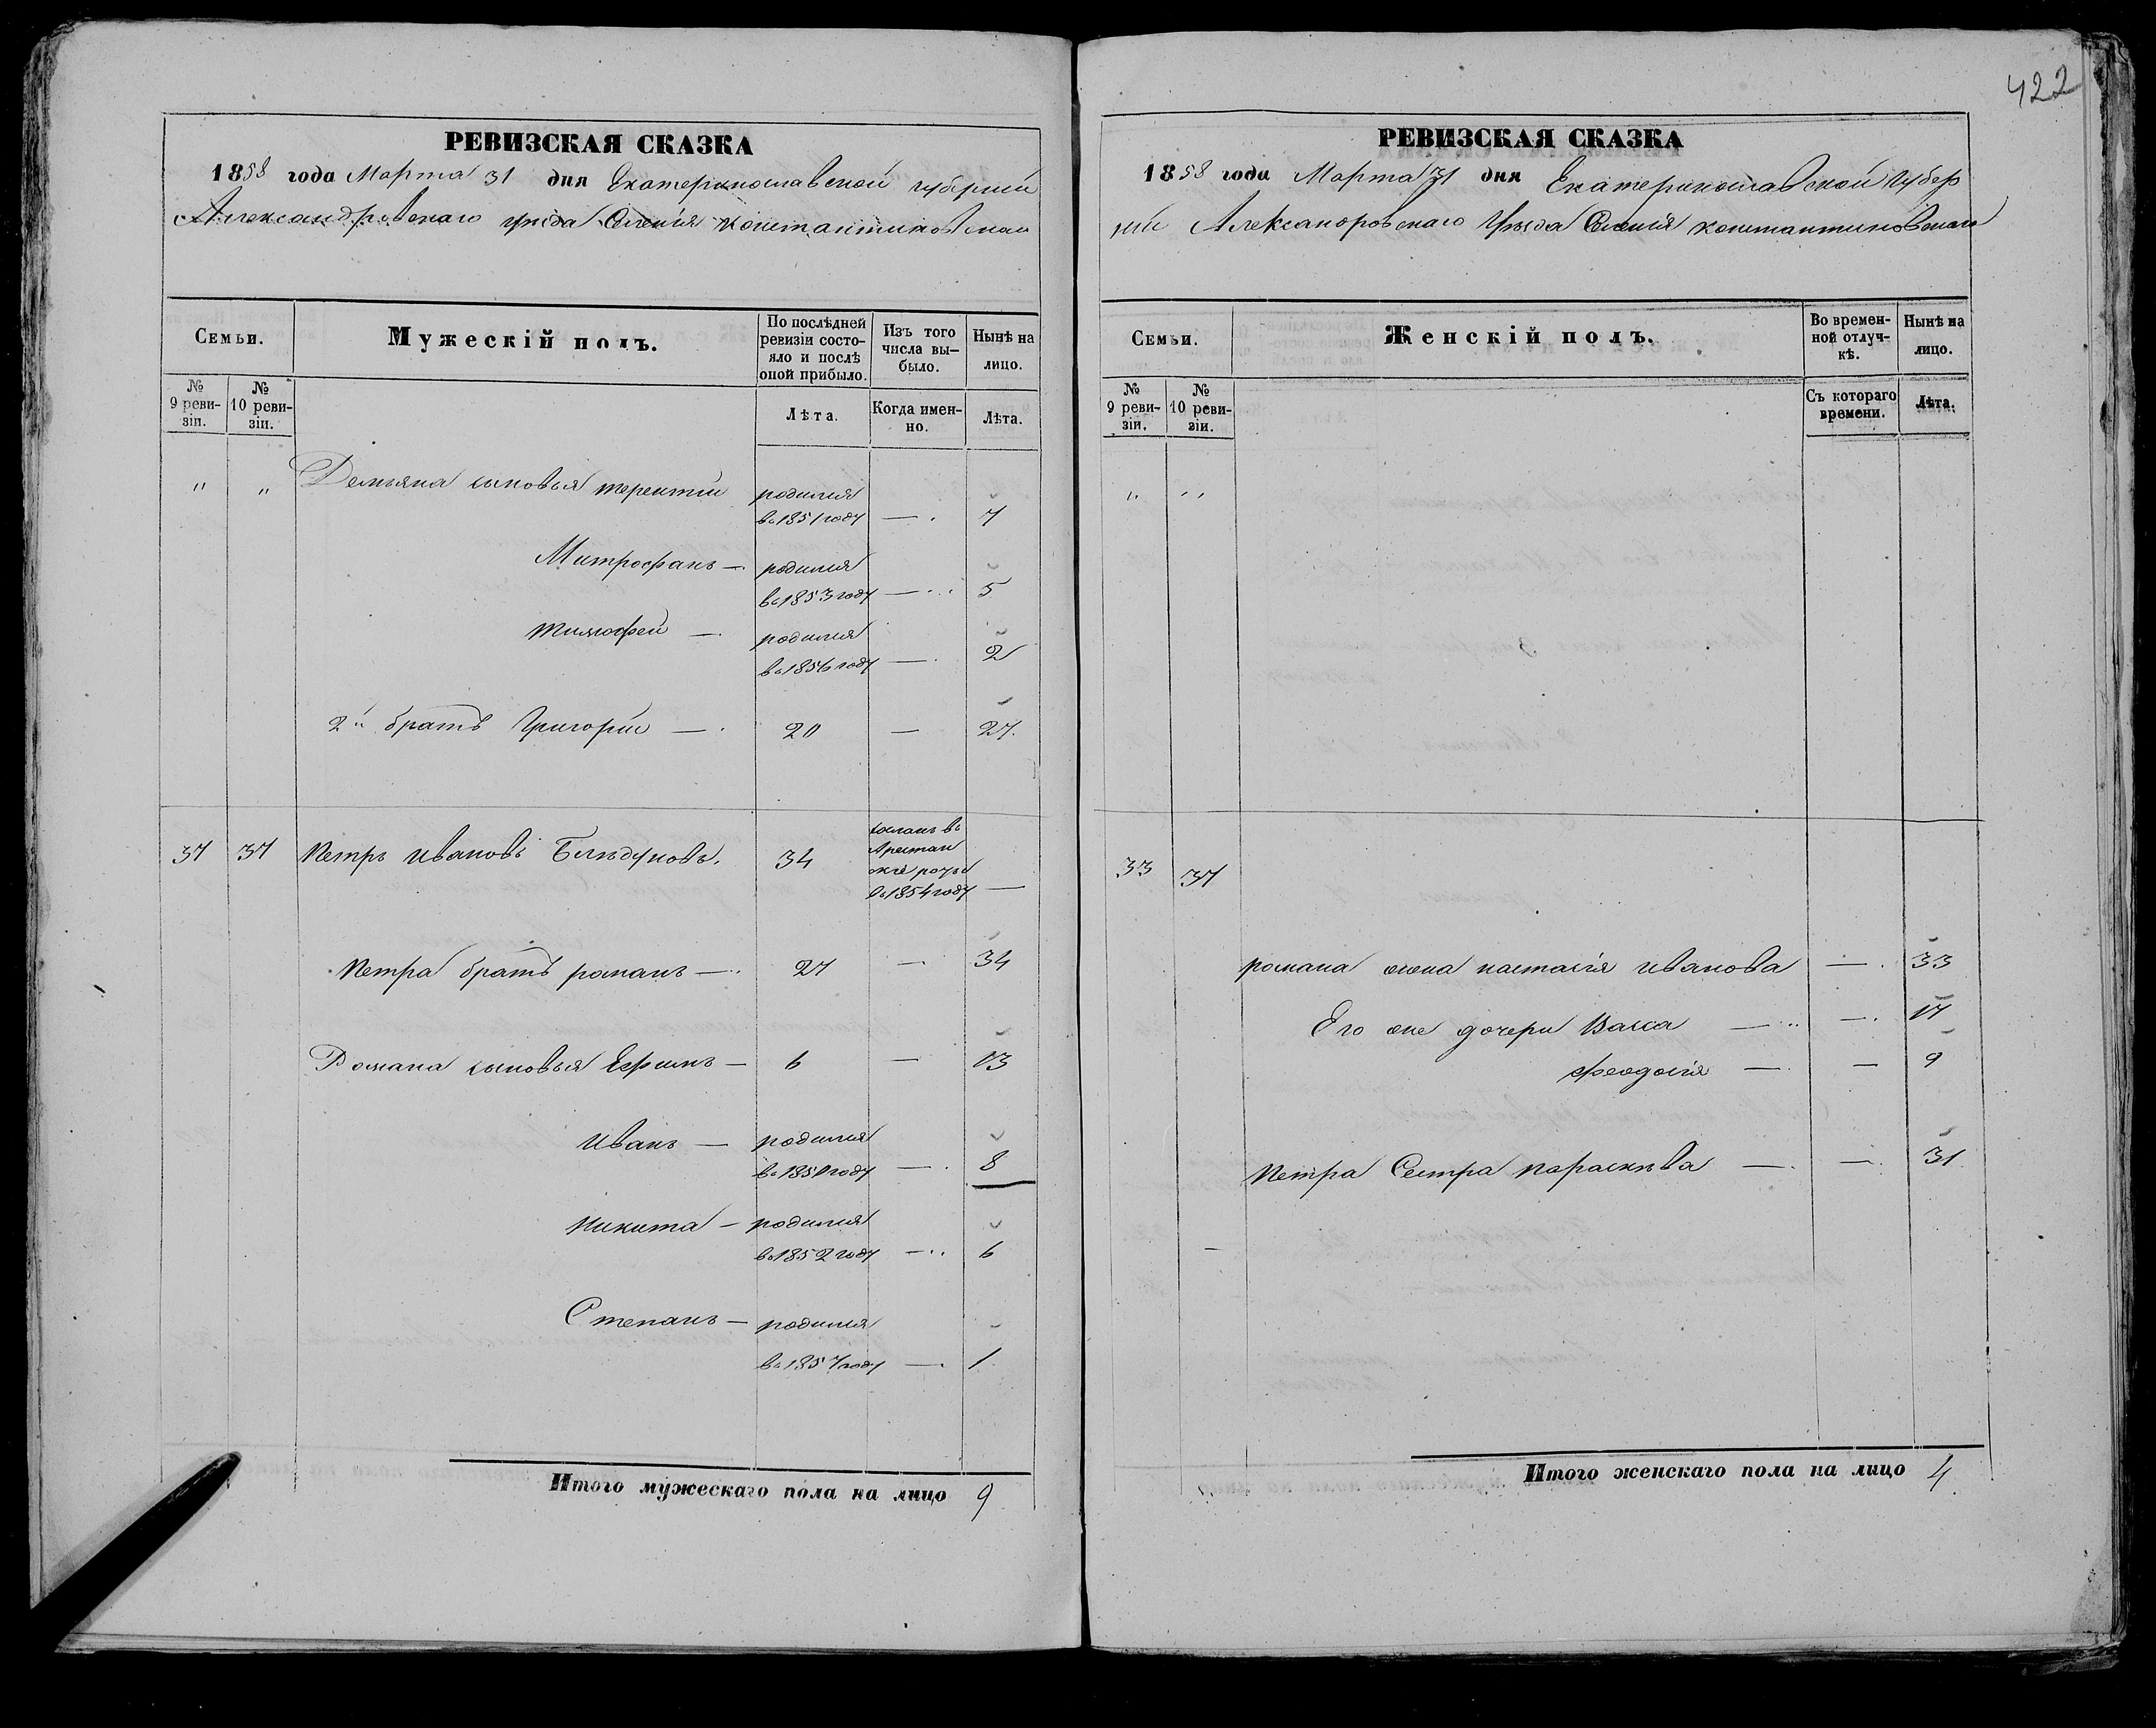 422
РЕВИЗСКАЯ СКАЗКА
1858 года Марта 31 дня Екатеринославской губернии
Александровскаго уѣзда Селенія Константиновскаго
Семьи.
Мужескій полъ.
По послѣдней ревизіи состояло и послѣ оной прибыло.
Изъ того числа выбыло.
Нынѣ на лицо.
№ 9 ревизіи.
№ 10 ревизіи.
Лѣта.
Когда именно.
Лѣта.
" " Демьяна сыновья терентіи родился
въ 1851 году — 7
Митрофанъ — родился
въ 1853 году — 5
тимофеи — родился
въ 1856 году — 2
2й братъ Григоріи — 20 — 27.
37 37 Петръ Ивановъ 34 сосланъ въ
Арестан
скіе роты
въ 1854 году —
Петра братъ романъ — 27 — 34
Романа сыновья Ефимъ — 6 — 13
Иванъ — родился
въ 1850 году — 8
Никита — родился
въ 1852 году — 6
Степанъ — родился
въ 1857 году — 1
Итого мужескаго пола на лицо 9
РЕВИЗСКАЯ СКАЗКА
1858 года Марта 31 дня Екатеринославской Губер
ніи Александровскаго Уѣзда Селенія константиновскаго
Семьи.
Женскій полъ.
Во временной отлучкѣ.
Нынѣ на лицо.
№ 9 ревизіи.
№ 10 ревизіи.
Съ котораго времени.
Лѣта.
" "
33 37
романа жена настасія иванова — 33
Его же дочери Васса — — 17
феодосія — — 9
Петра Сестра параскѣва — — 31
Итого женскаго пола на лицо 4